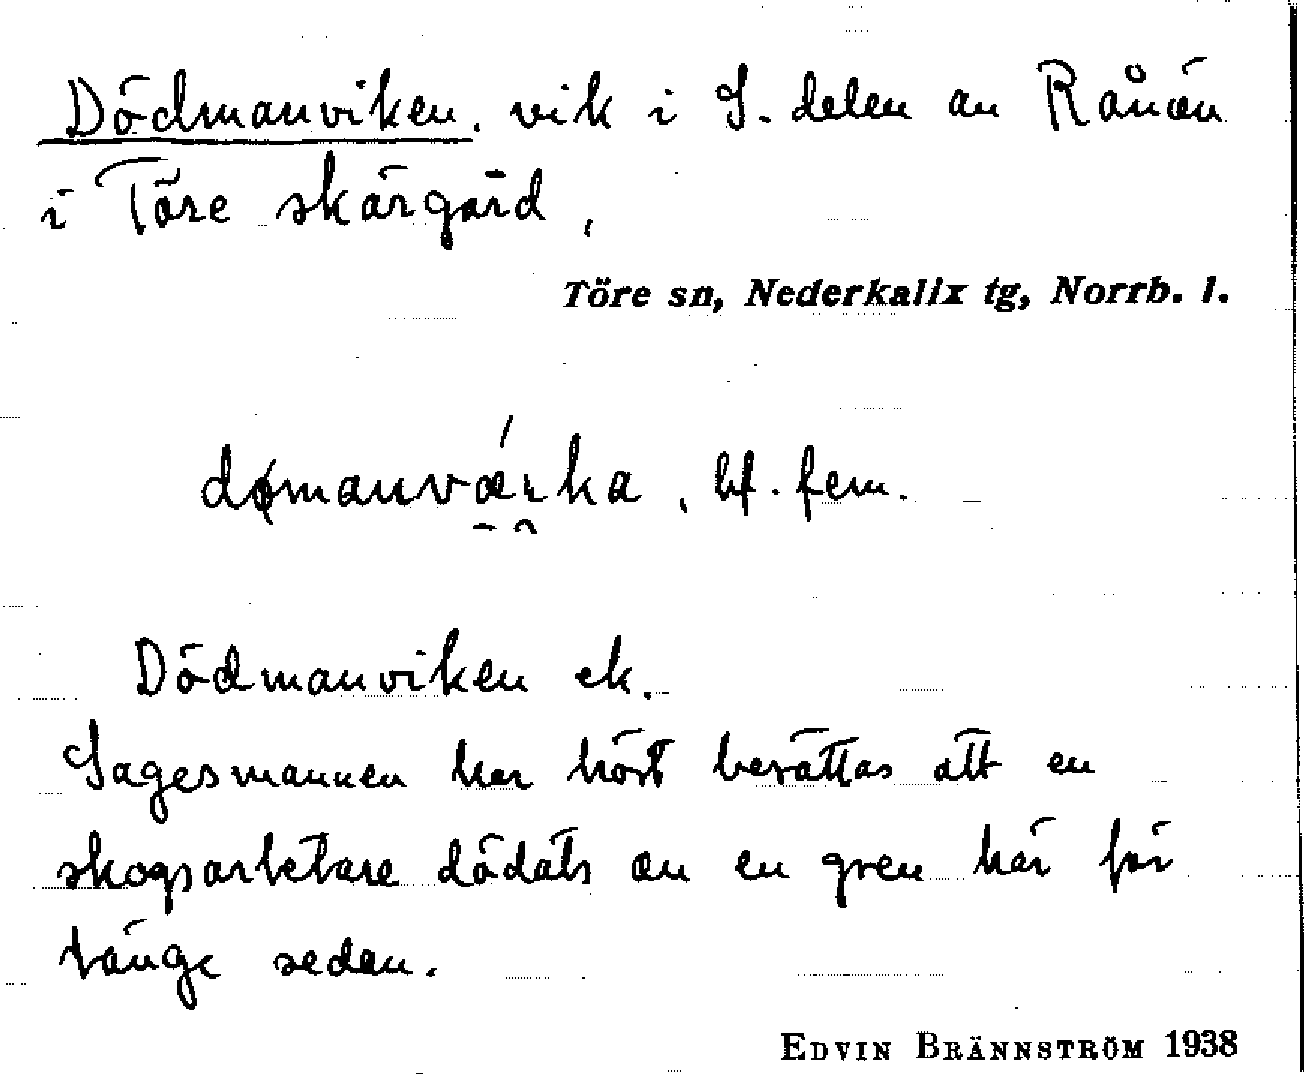 Dödmanviken, vik i S. delen av Rånön
i Töre skärgård,
Töre sn, Nederkalix tg, Norrb. l.
bf. fem.
Dödmanviken ek.
Sagesmannen har hört berättas att en
skogsarbetare dödats av en gren här för
länge sedan.
EDVIN BRÄNNSTRÖM 1938